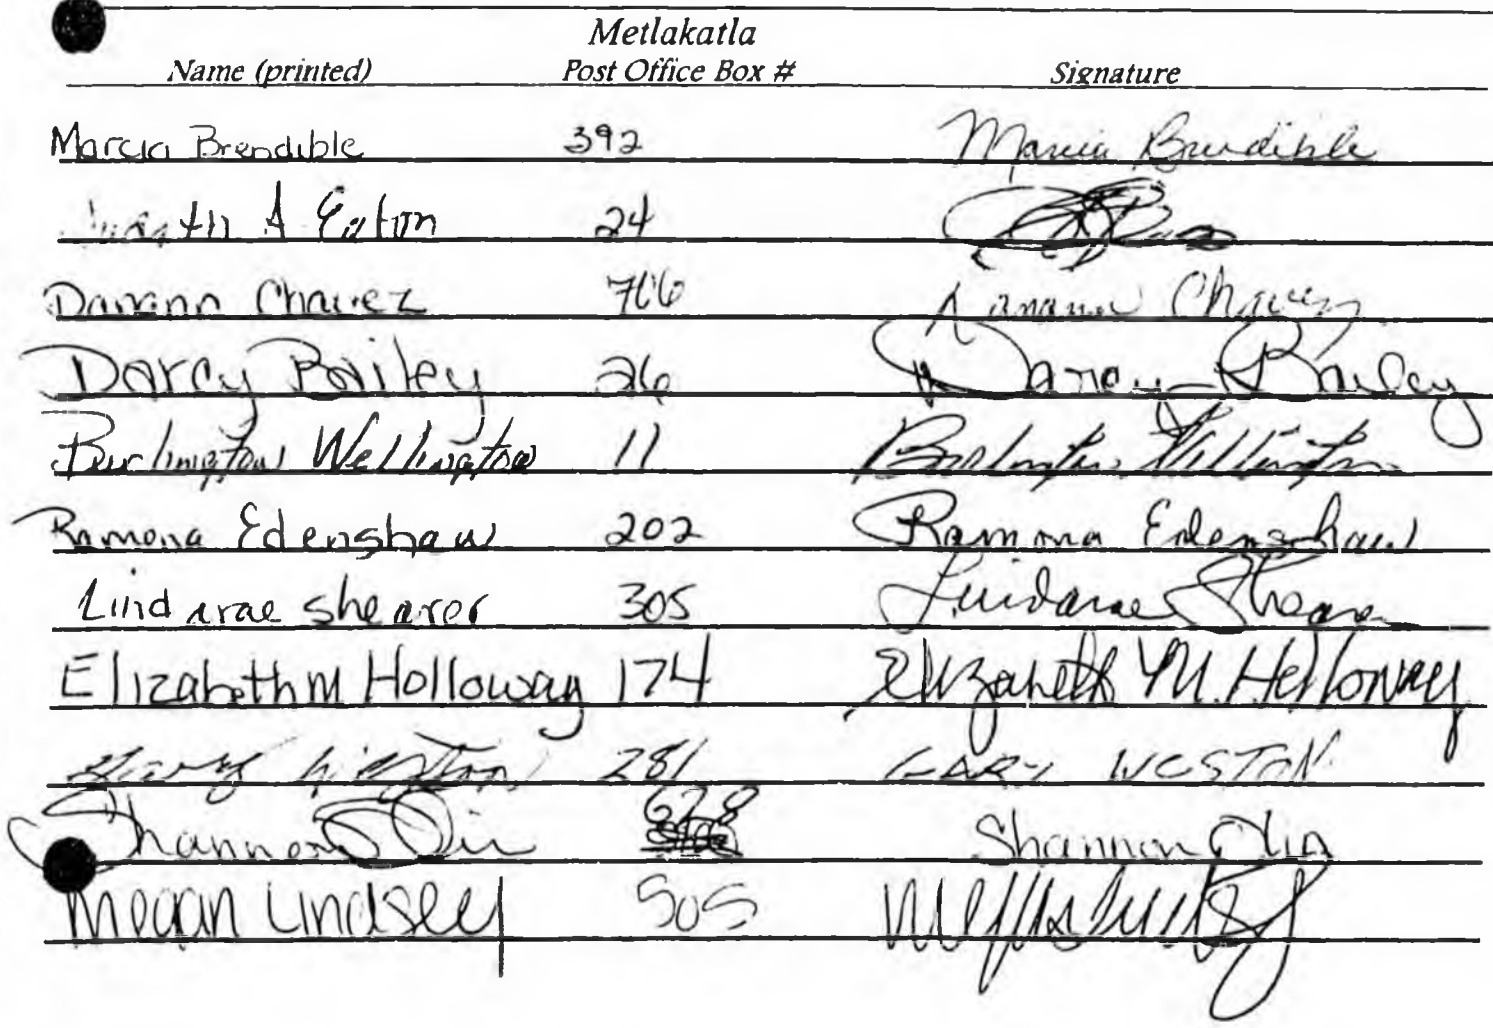 Metlakatla
Name (printed) Post Office Box # Signature
Marcia Brendible 392 Marcia Brendible
A Eaton 24
Chavez Chavez
Darcy Bailey 26 Darcy Bailey
Burlington Wellington 11 Burlington Wellington
Ramona Edenshaw 202 Ramona Edenshaw
Lindarae shearer 305 Lindarae Shearer
Elizabeth M Holloway 174 Elizabeth M. Holloway
Gary Weston 281 GARY WESTON
Shannon 628 Shannon
Megan Lindsey 505